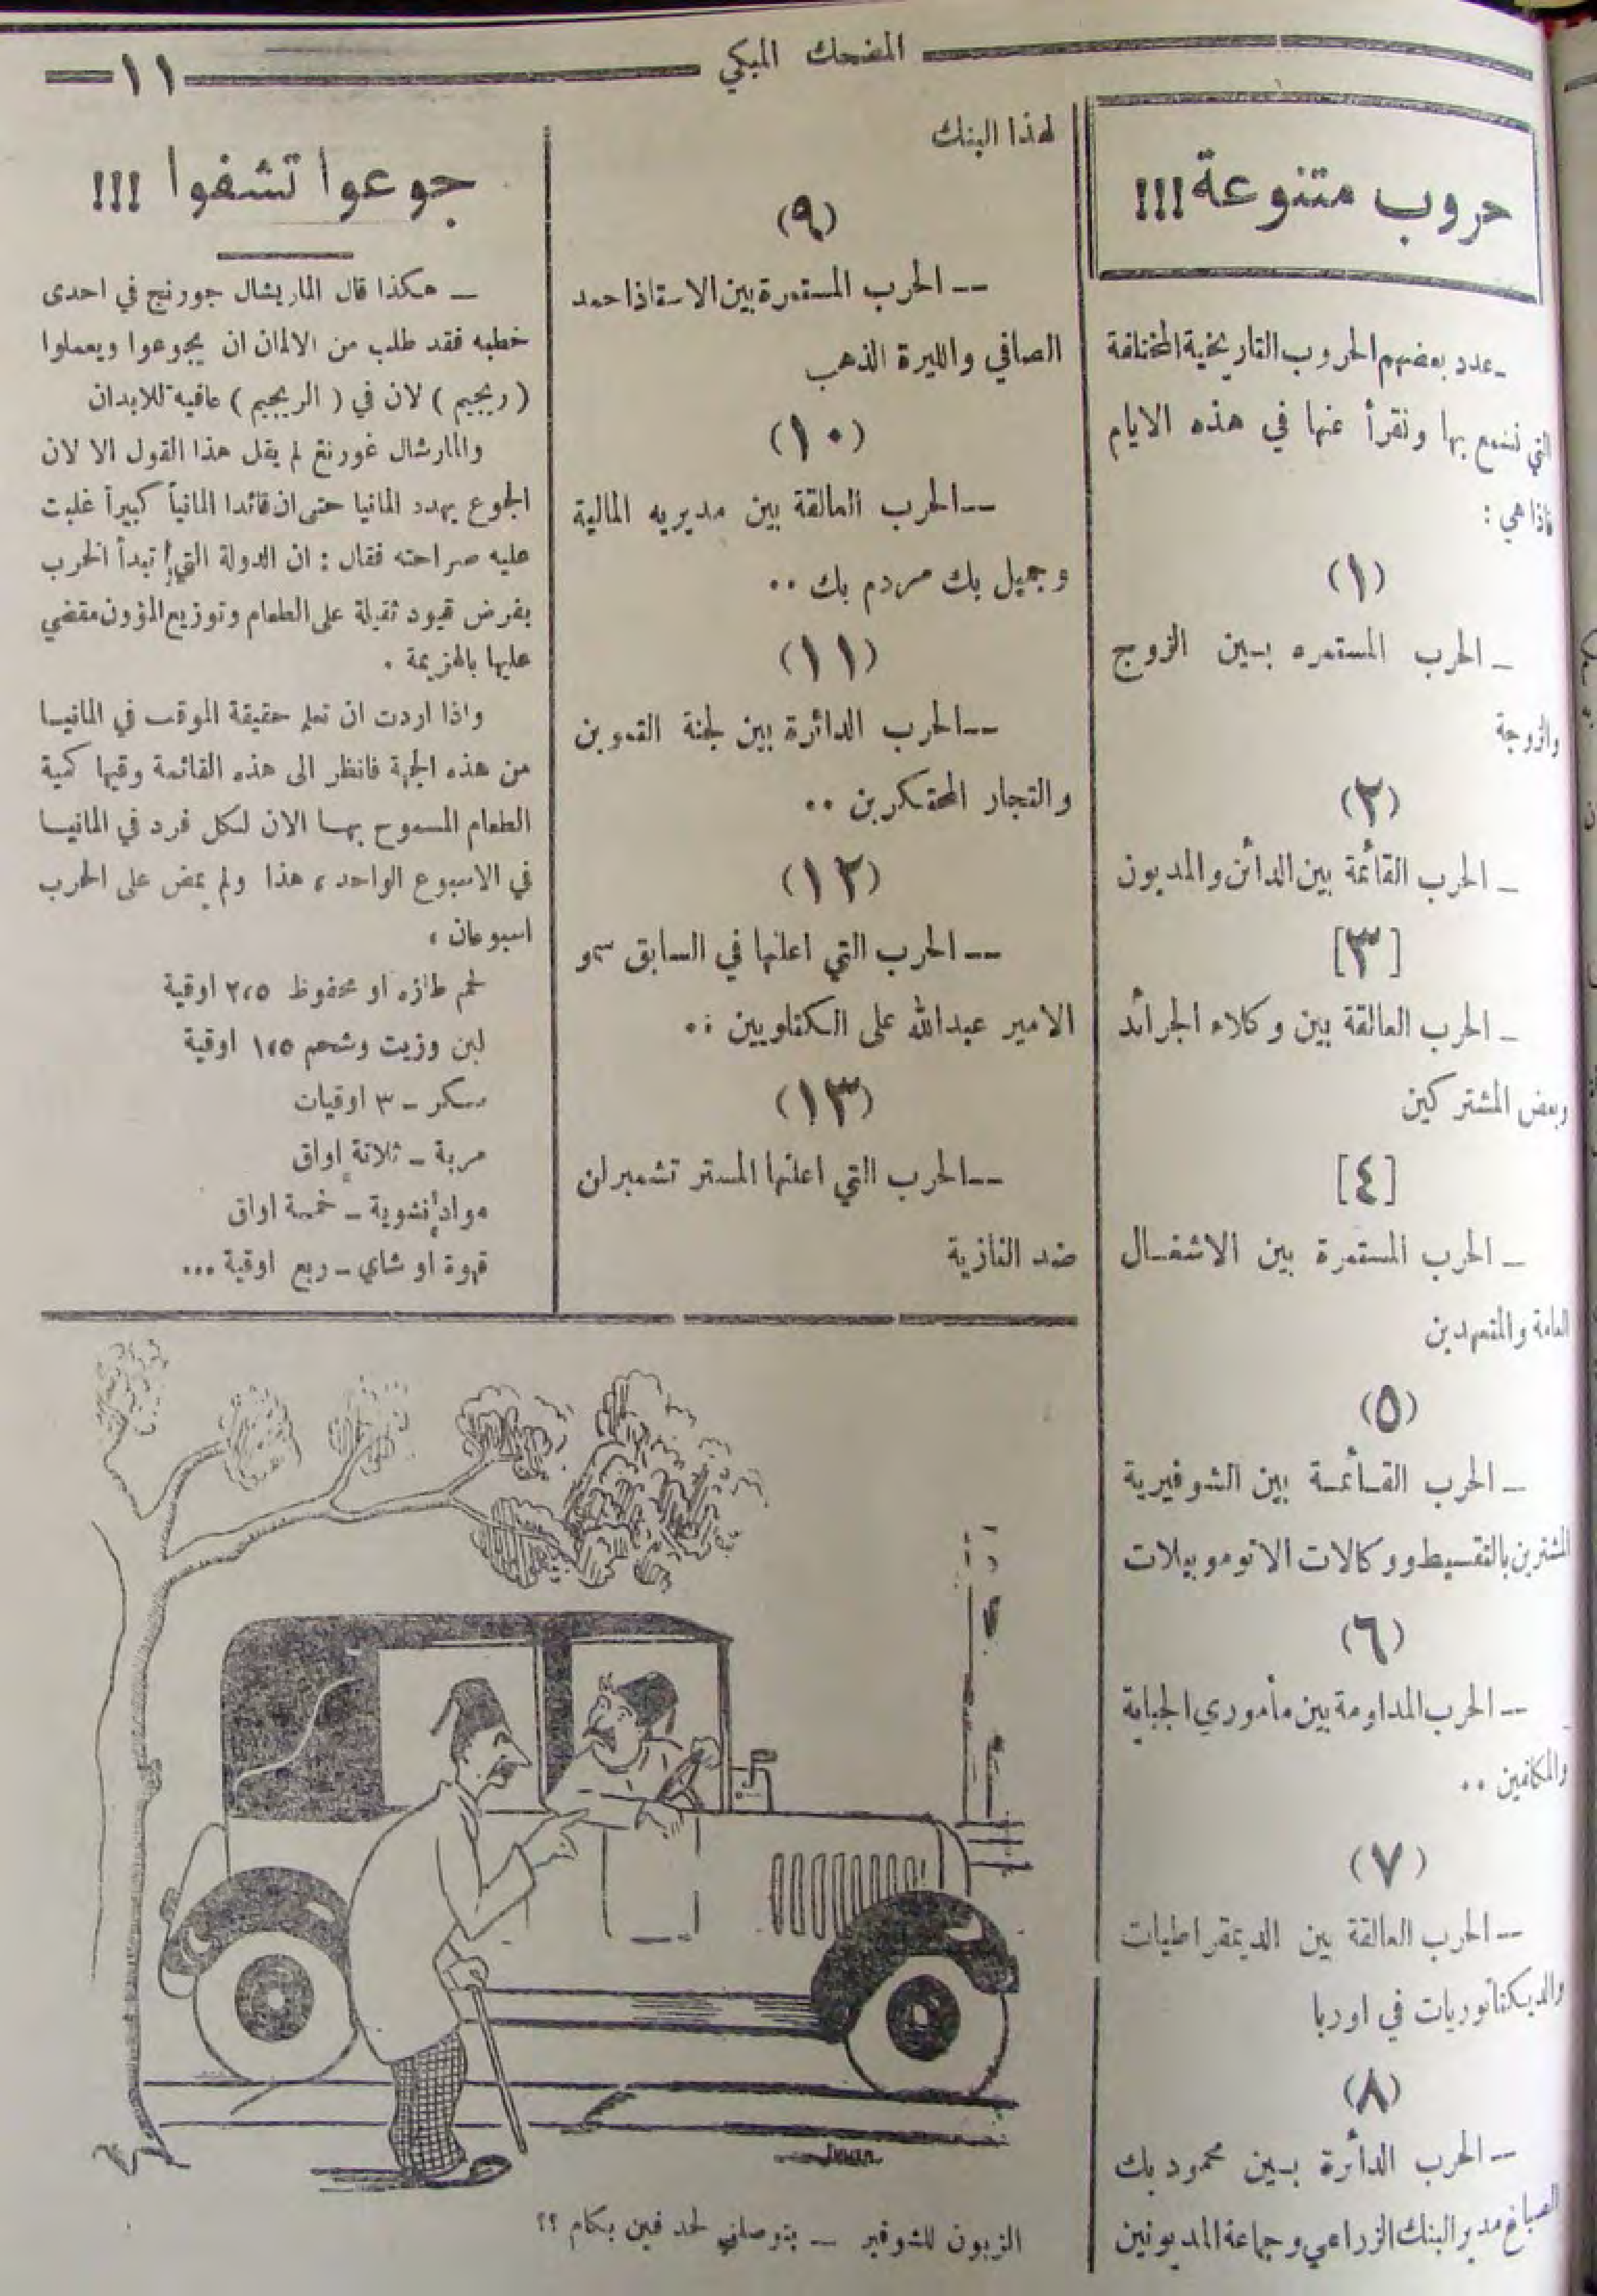 المضحك المبكي
١١
حروب متنوعة!!!
ـ عدد بعضهم الحروب التاريخية المختلفة
التي نسمع بها ونقرأ عنها في هذه الايام
فاذا هي :
(١)
ـ الحرب المستمره بـين الزوج
والزوجة
(٢)
ـ الحرب القائمة بين الدائن والمديون
[٣]
ـ الحرب العالقة بين وكلاء الجرائد
وبعض المشتركين
[٤]
ـ الحرب المستمرة بين الاشغـال
العامة والمتعهدين
(٥)
ـ الحرب القـائمـة بين الشوفيرية
المشترين بالتقسيط ووكالات الاتوموبيلات
(٦)
-- الحرب المداومة بين مأموري الجباية
والمكلفين ..
(٧)
-- الحرب العالقة بين الديمقراطيات
والديكتاتوريات في اوربا
(٨)
-- الحرب الدائرة بـين محمود بك
الصباغ مدير البنك الزراعي وجماعة المديونين
لهذا البنك
(٩)
-- الحرب المستمرة بين الاستاذ احمد
الصافي والليرة الذهب
(١٠)
-- الحرب العالقة بين مديريه المالية
وجميل بك مردم بك ..
(١١)
-- الحرب الدائرة بين لجنة التموين
والتجار المحتكرين ..
(١٢)
-- الحرب التي اعلنها في السابق سمو
الامير عبدالله على الكتلويين ..
(١٣)
-- الحرب التي اعلنها المستر تشمبرلن
ضد النازية
جوعوا تشفوا !!!
ـ هكذا قال الماريشال جورنج في احدى
خطبه فقد طلب من الالمان ان يجوعوا ويعملوا
( ريجيم ) لان في ( الريجيم ) عافية للابدان
والمارشال غورنغ لم يقل هذا القول الا لان
الجوع يهدد المانيا حتى ان قائدا المانياً كبيراً غلبت
عليه صراحته فقال : ان الدولة التي تبدأ الحرب
بفرض قيود ثقيلة على الطعام وتوزيع المؤون مقضي
عليها بالهزيمة .
واذا اردت ان تعلم حقيقة الموقف في المانيـا
من هذه الجهة فانظر الى هذه القائمة وفيها كمية
الطعام المسموح بهـا الان لكل فرد في المانيـا
في الاسبوع الواحد ، هذا ولم يمض على الحرب
اسبوعان ،
لحم طازه او محفوظ ٢،٥ اوقية
لبن وزيت وشحم ١،٥ اوقية
سكر ـ ٣ اوقيات
مربة ـ ثلاثة اواق
مواد نشوية ـ خمسة اواق
قهوة او شاي ـ ربع اوقية ...
الزبون للشوفير ـ بتوصلني لحد فين بكام ؟؟